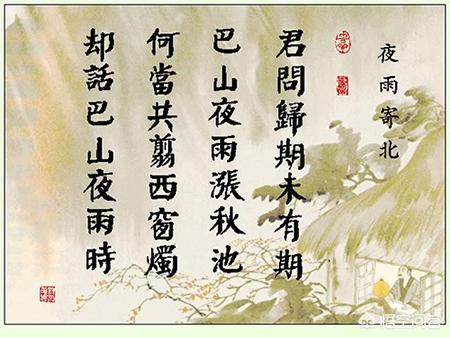 夜雨寄北
君問歸期未有期
巴山夜雨漲秋池
何當共翦西窗燭
却話巴山夜雨時
悟空问答